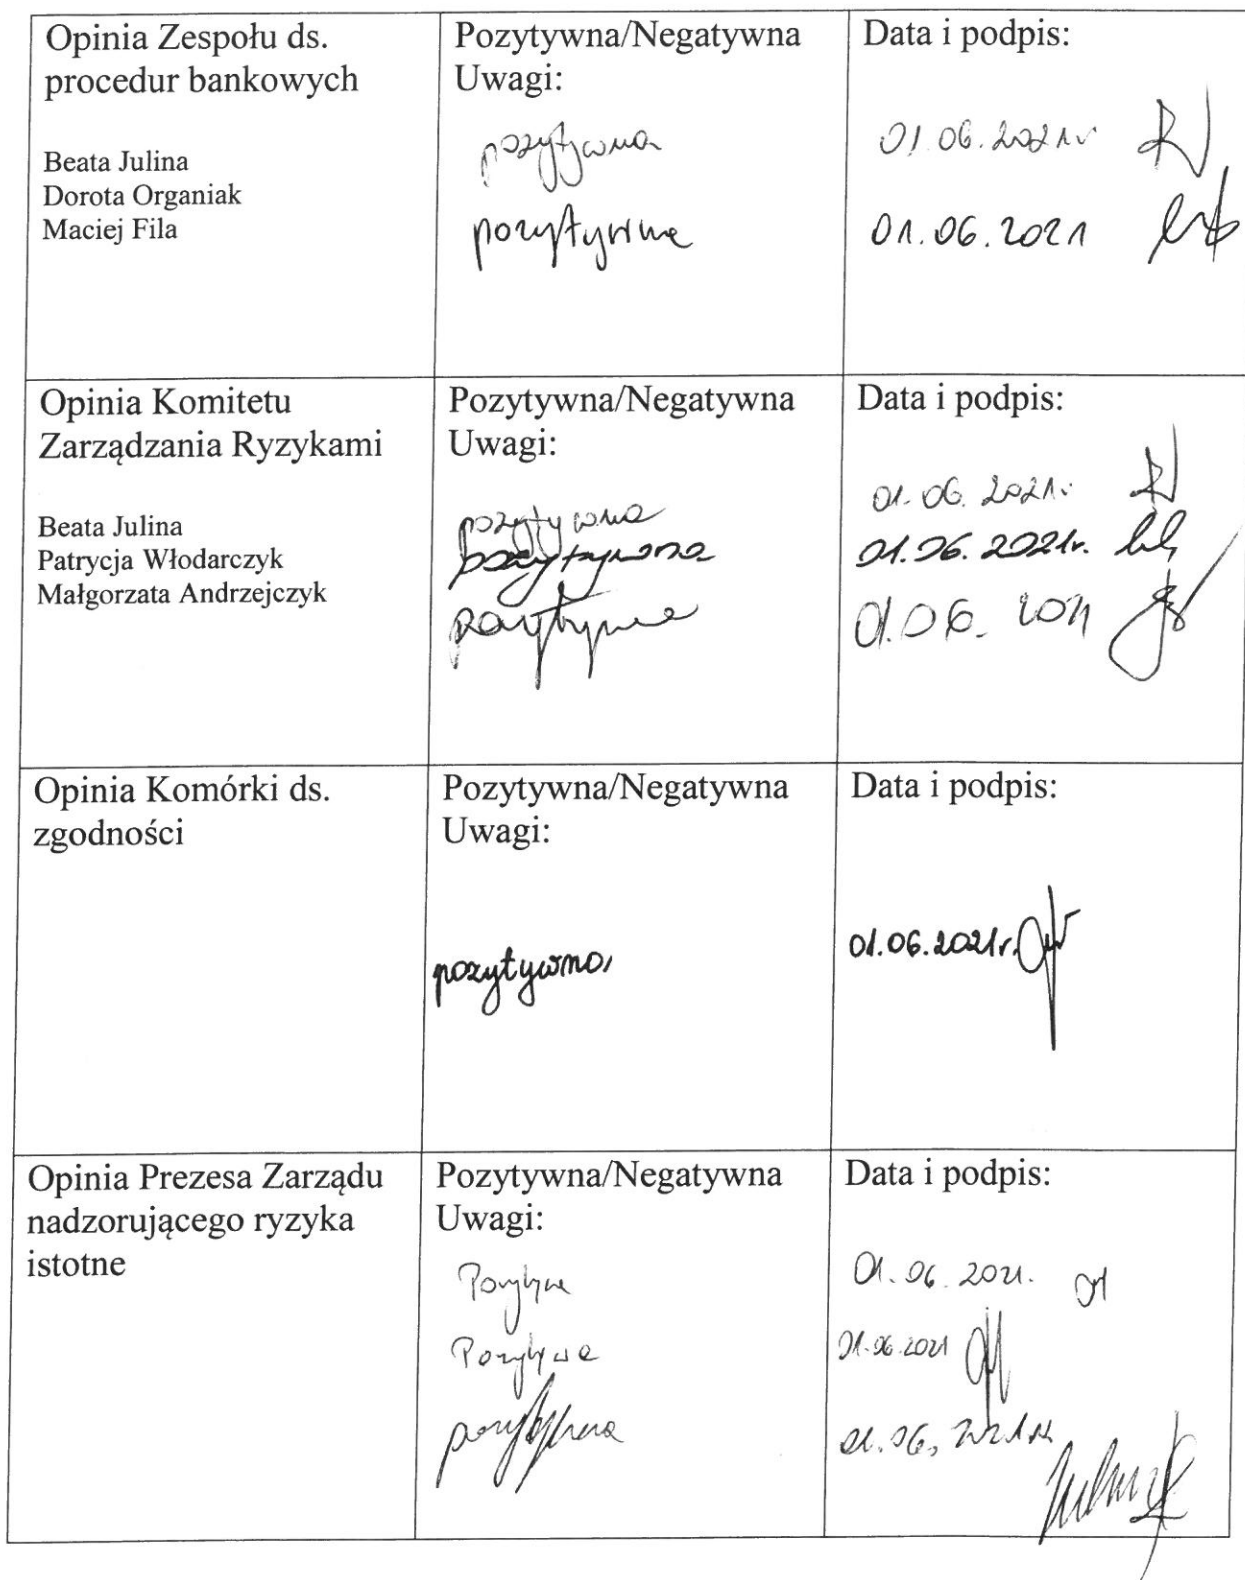 Opinia Zespołu ds.
procedur bankowych
Beata Julina
Dorota Organiak
Maciej Fila
Pozytywna/Negatywna
Uwagi:
pozytywna
pozytywna
Data i podpis:
01.06.2021r
01.06.2021
Opinia Komitetu
Zarządzania Ryzykami
Beata Julina
Patrycja Włodarczyk
Małgorzata Andrzejczyk
Pozytywna/Negatywna
Uwagi:
pozytywna
pozytywna
pozytywna
Data i podpis:
01.06.2021r
01.06.2021r.
01.06.2021
Opinia Komórki ds.
zgodności
Pozytywna/Negatywna
Uwagi:
pozytywna
Data i podpis:
01.06.2021r.
Opinia Prezesa Zarządu
nadzorującego ryzyka
istotne
Pozytywna/Negatywna
Uwagi:
Pozytywna
Pozytywna
pozytywna
Data i podpis:
01.06.2021.
01.06.2021
01.06.2021r